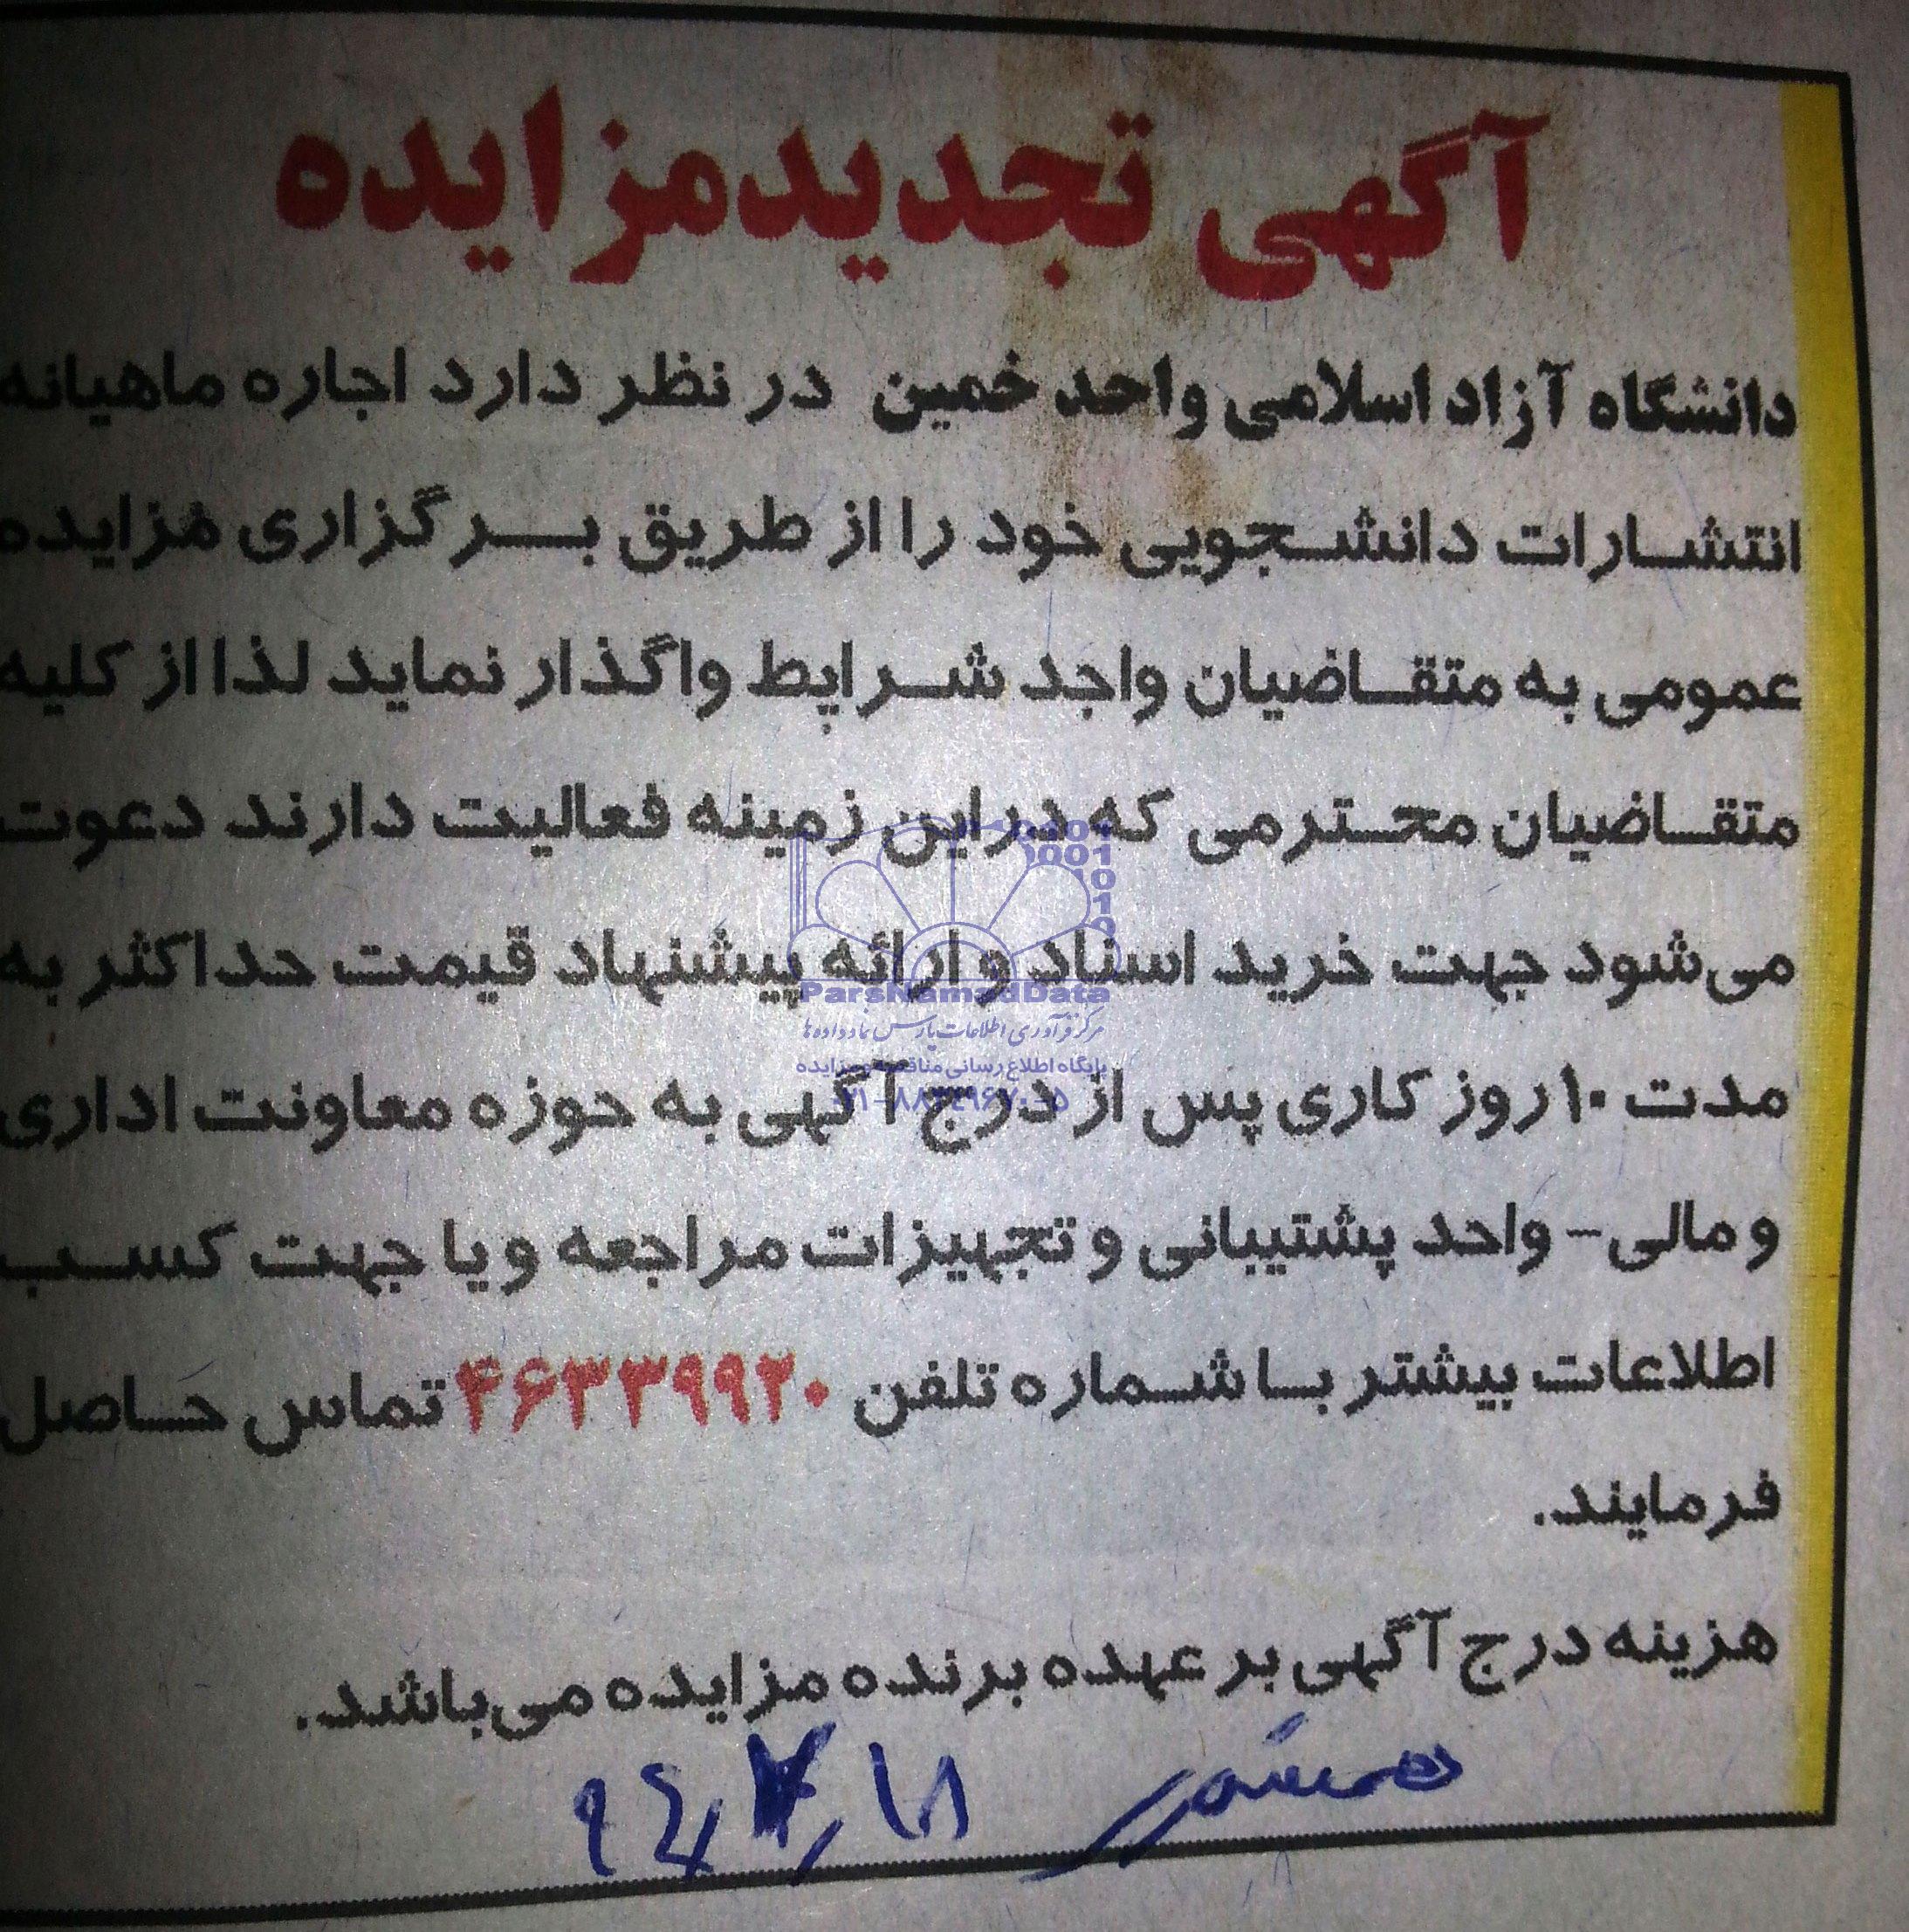 آگهی تجدیدمزایده
دانشگاه آزاد اسلامی واحد خمین در نظر دارد اجاره ماهیانه
انتشارات دانشجویی خود را از طریق برگزاری مزایده
عمومی به متقاضیان واجد شرایط واگذار نماید لذا از کلیه
متقاضیان محترمی که دراین زمینه فعالیت دارند دعوت
می‌شود جهت خرید اسناد و ارائه پیشنهاد قیمت حداکثر به
ParsNamadData
مرکز فرآوری اطلاعات پارس نماد داده ها
پایگاه اطلاع رسانی مناقصه و مزایده
مدت ۱۰ روز کاری پس از درج آگهی به حوزه معاونت اداری
و مالی- واحد پشتیبانی و تجهیزات مراجعه و یا جهت کسب
اطلاعات بیشتر با شماره تلفن ۴۶۳۳۹۹۲۰ تماس حاصل
فرمایند.
هزینه درج آگهی بر عهده برنده مزایده می‌باشد.